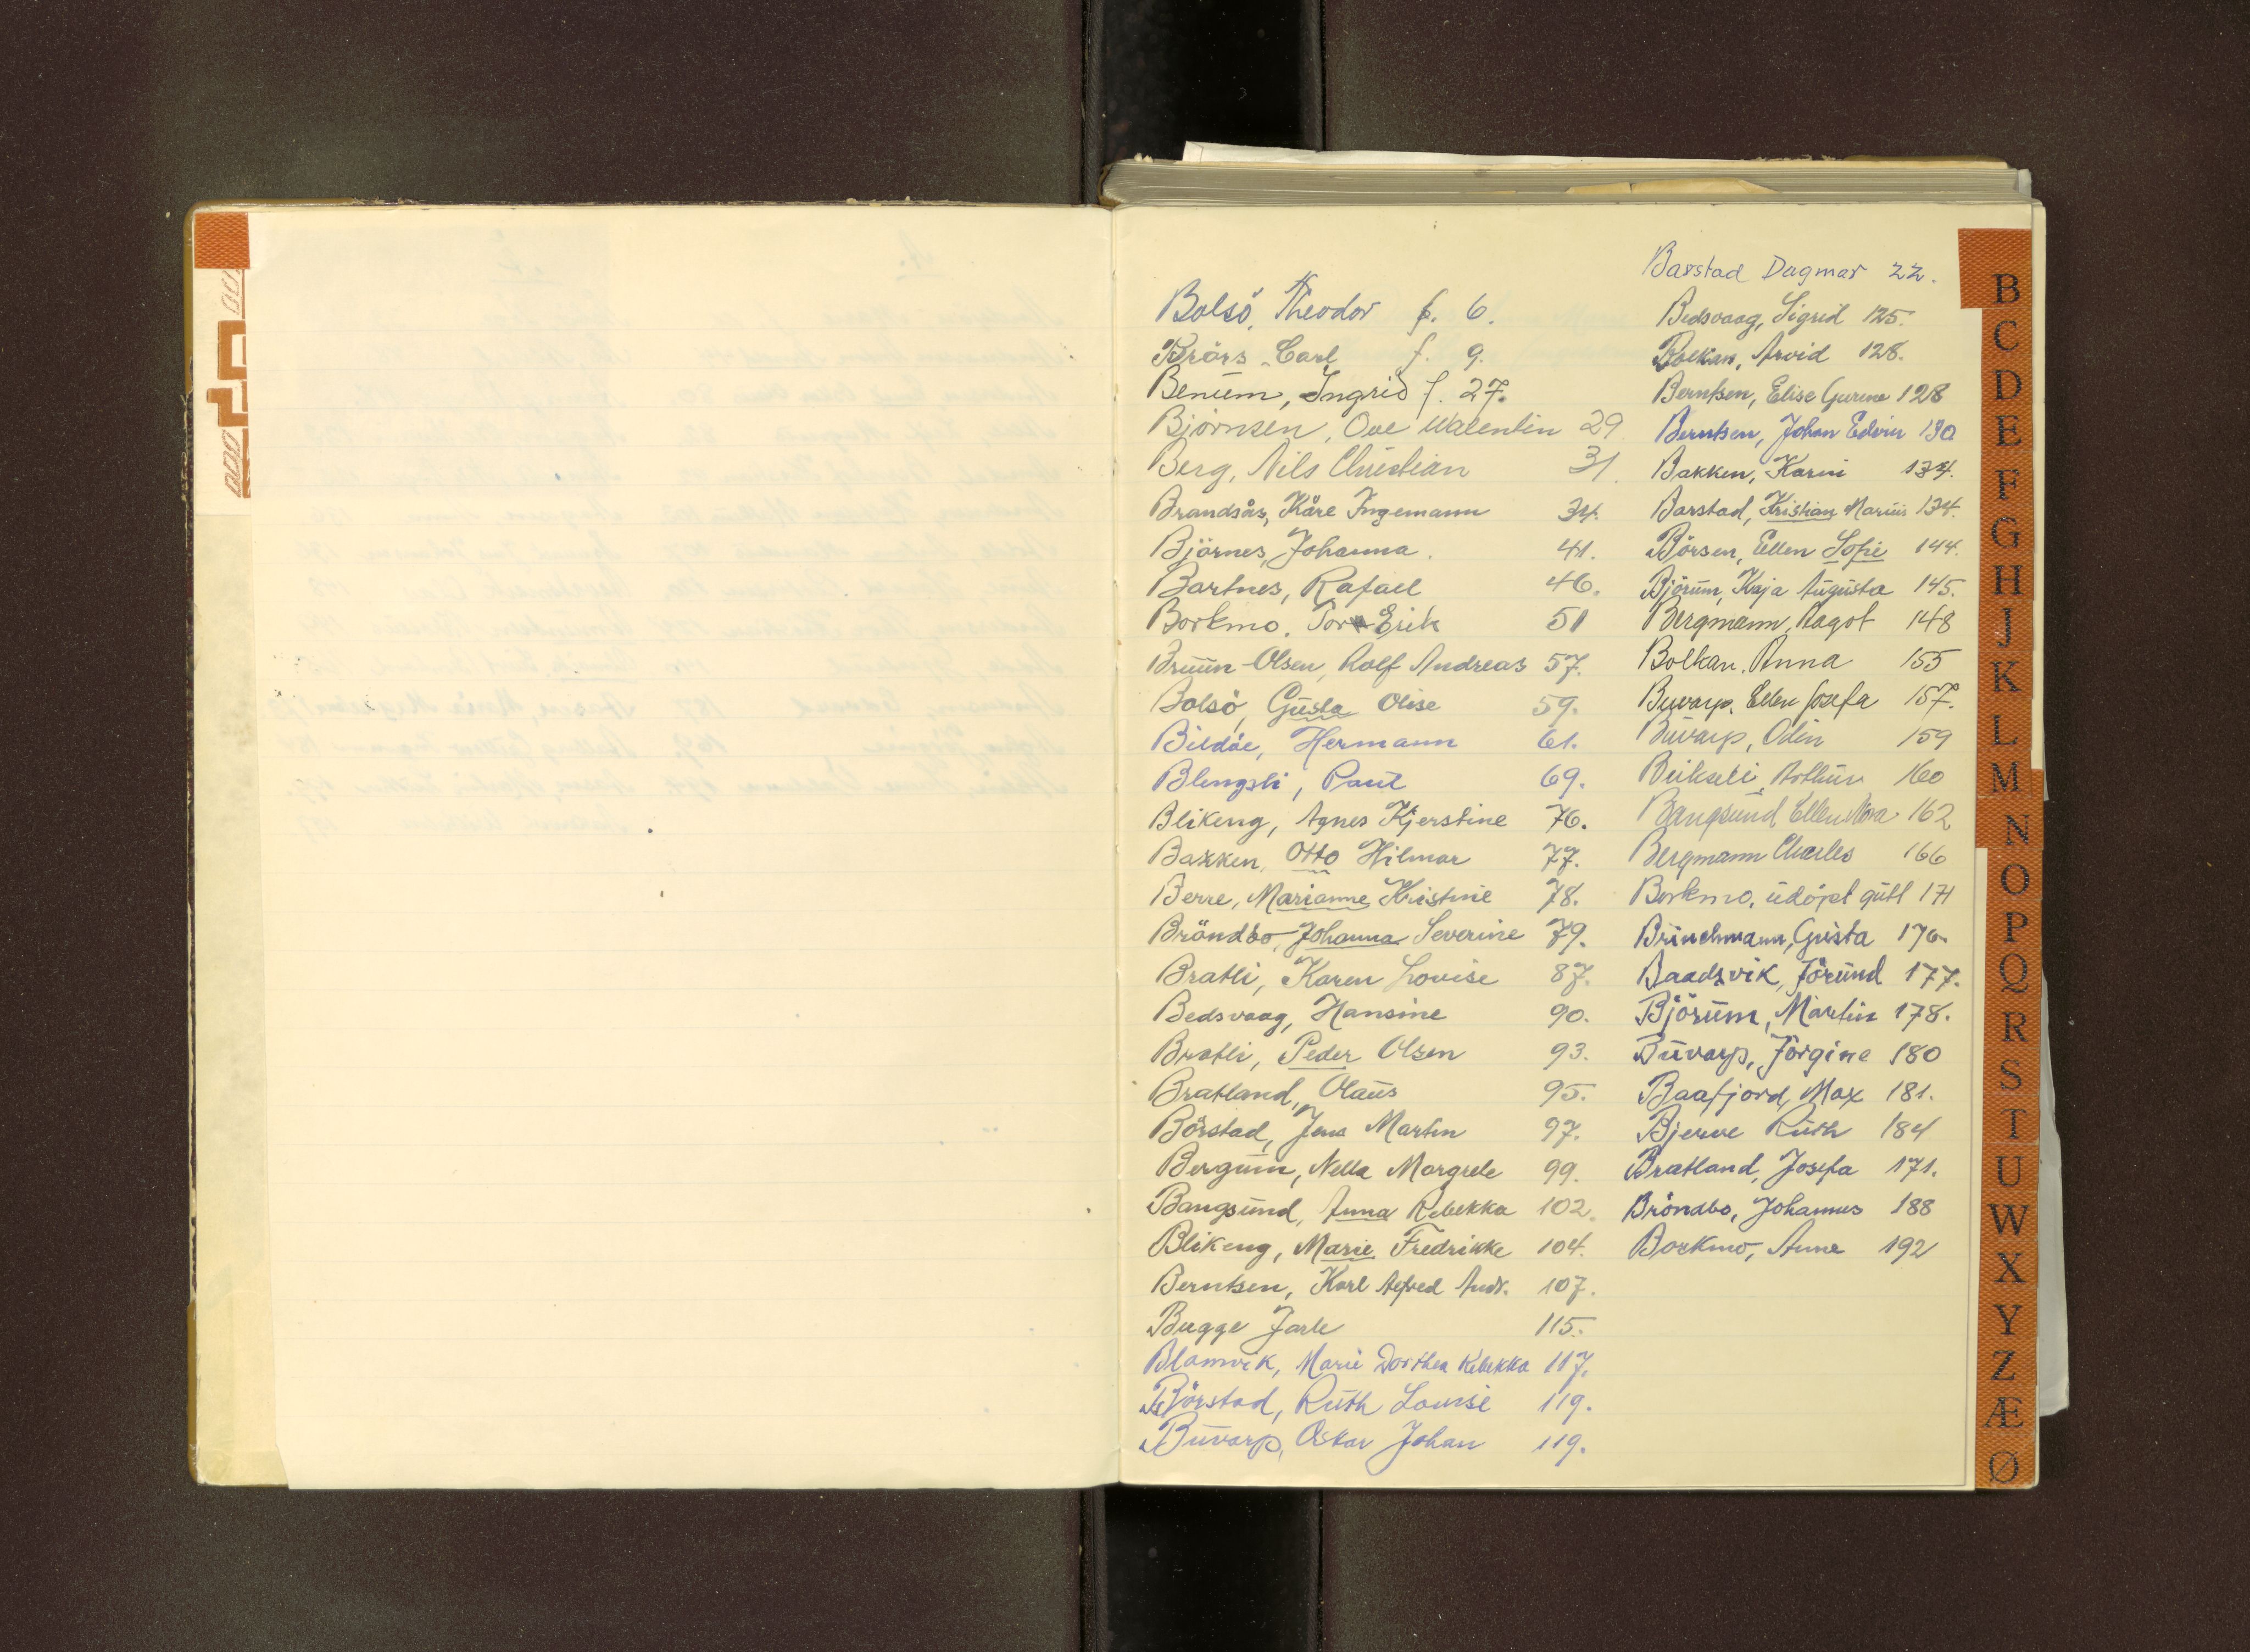 Bolsö, Theodor f. 6.
Brörs, Carl f. 9.
Benum, Ingrid f. 27.
Björnsen, Ove Walentin 29
Berg, Nils Christian 31.
Brandsås, Kåre Ingemann 34.
Björnes, Johanna. 41.
Bartnes, Rafael 46.
Borkmo. Tor Erik 51
Bruun-Olsen, Rolf Andreas 57.
Bolsö, Gusta Olise 59.
Bildöe, Hermann 61.
Blengsli, Paul 69.
Blikeng, Agnes Kjerstine 76.
Bakken, Otto Hilmar 77.
Berre, Marianne Kristine 78.
Bröndbo, Johanna Severine 79.
Bratli, Karen Lovise 87.
Bedsvaag, Hansine 90.
Bratli, Peder Olsen 93.
Bratland, Olaus 95.
Börstad, Jens Martin 97.
Bergum, Nella Margrete 99.
Bangsund, Anna Rebekka 102.
Blikeng, Marie Fredrikke 104.
Berntsen, Karl Alfred Andr. 107.
Bugge Jarle 115.
Blamvik, Marie Dorthea Rebekka 117.
Börstad, Ruth Louise 119.
Buvarp, Oskar Johan 119.
Barstad Dagmar 22.
Bedsvaag, Sigrid 125.
Arvid 128.
Berntsen, Elise Gurine 128
Berntsen, Johan Edvin 130
Bakken, Karin 134.
Barstad, Kristian Marius 134.
Börsen, Ellen Sofie 144.
Björum, Kaja Augusta 145.
Bergmann, Aagot 148
Bolkan, Anna 155
Buvarp, Ellen Josefa 157.
Buvarp, Odin 159
Arthur 160
Bangsund Ellen Nora 162
Bergmann Charles 166
Borkmo, udöpt gutt 171
Brinchmann, Gusta 176.
Baadsvik, Jörund 177.
Björum, Martin 178.
Buvarp, Jörgine 180
Baafjord, Max 181.
Bjerve Ruth 184
Bratland, Josefa 171.
Bröndbo, Johannes 188
Borkmo, Anne 192
B
C
D
E
F
G
H
J
K
L
M
N
O
P
Q
R
S
T
U
W
X
Y
Z
Æ
Ø